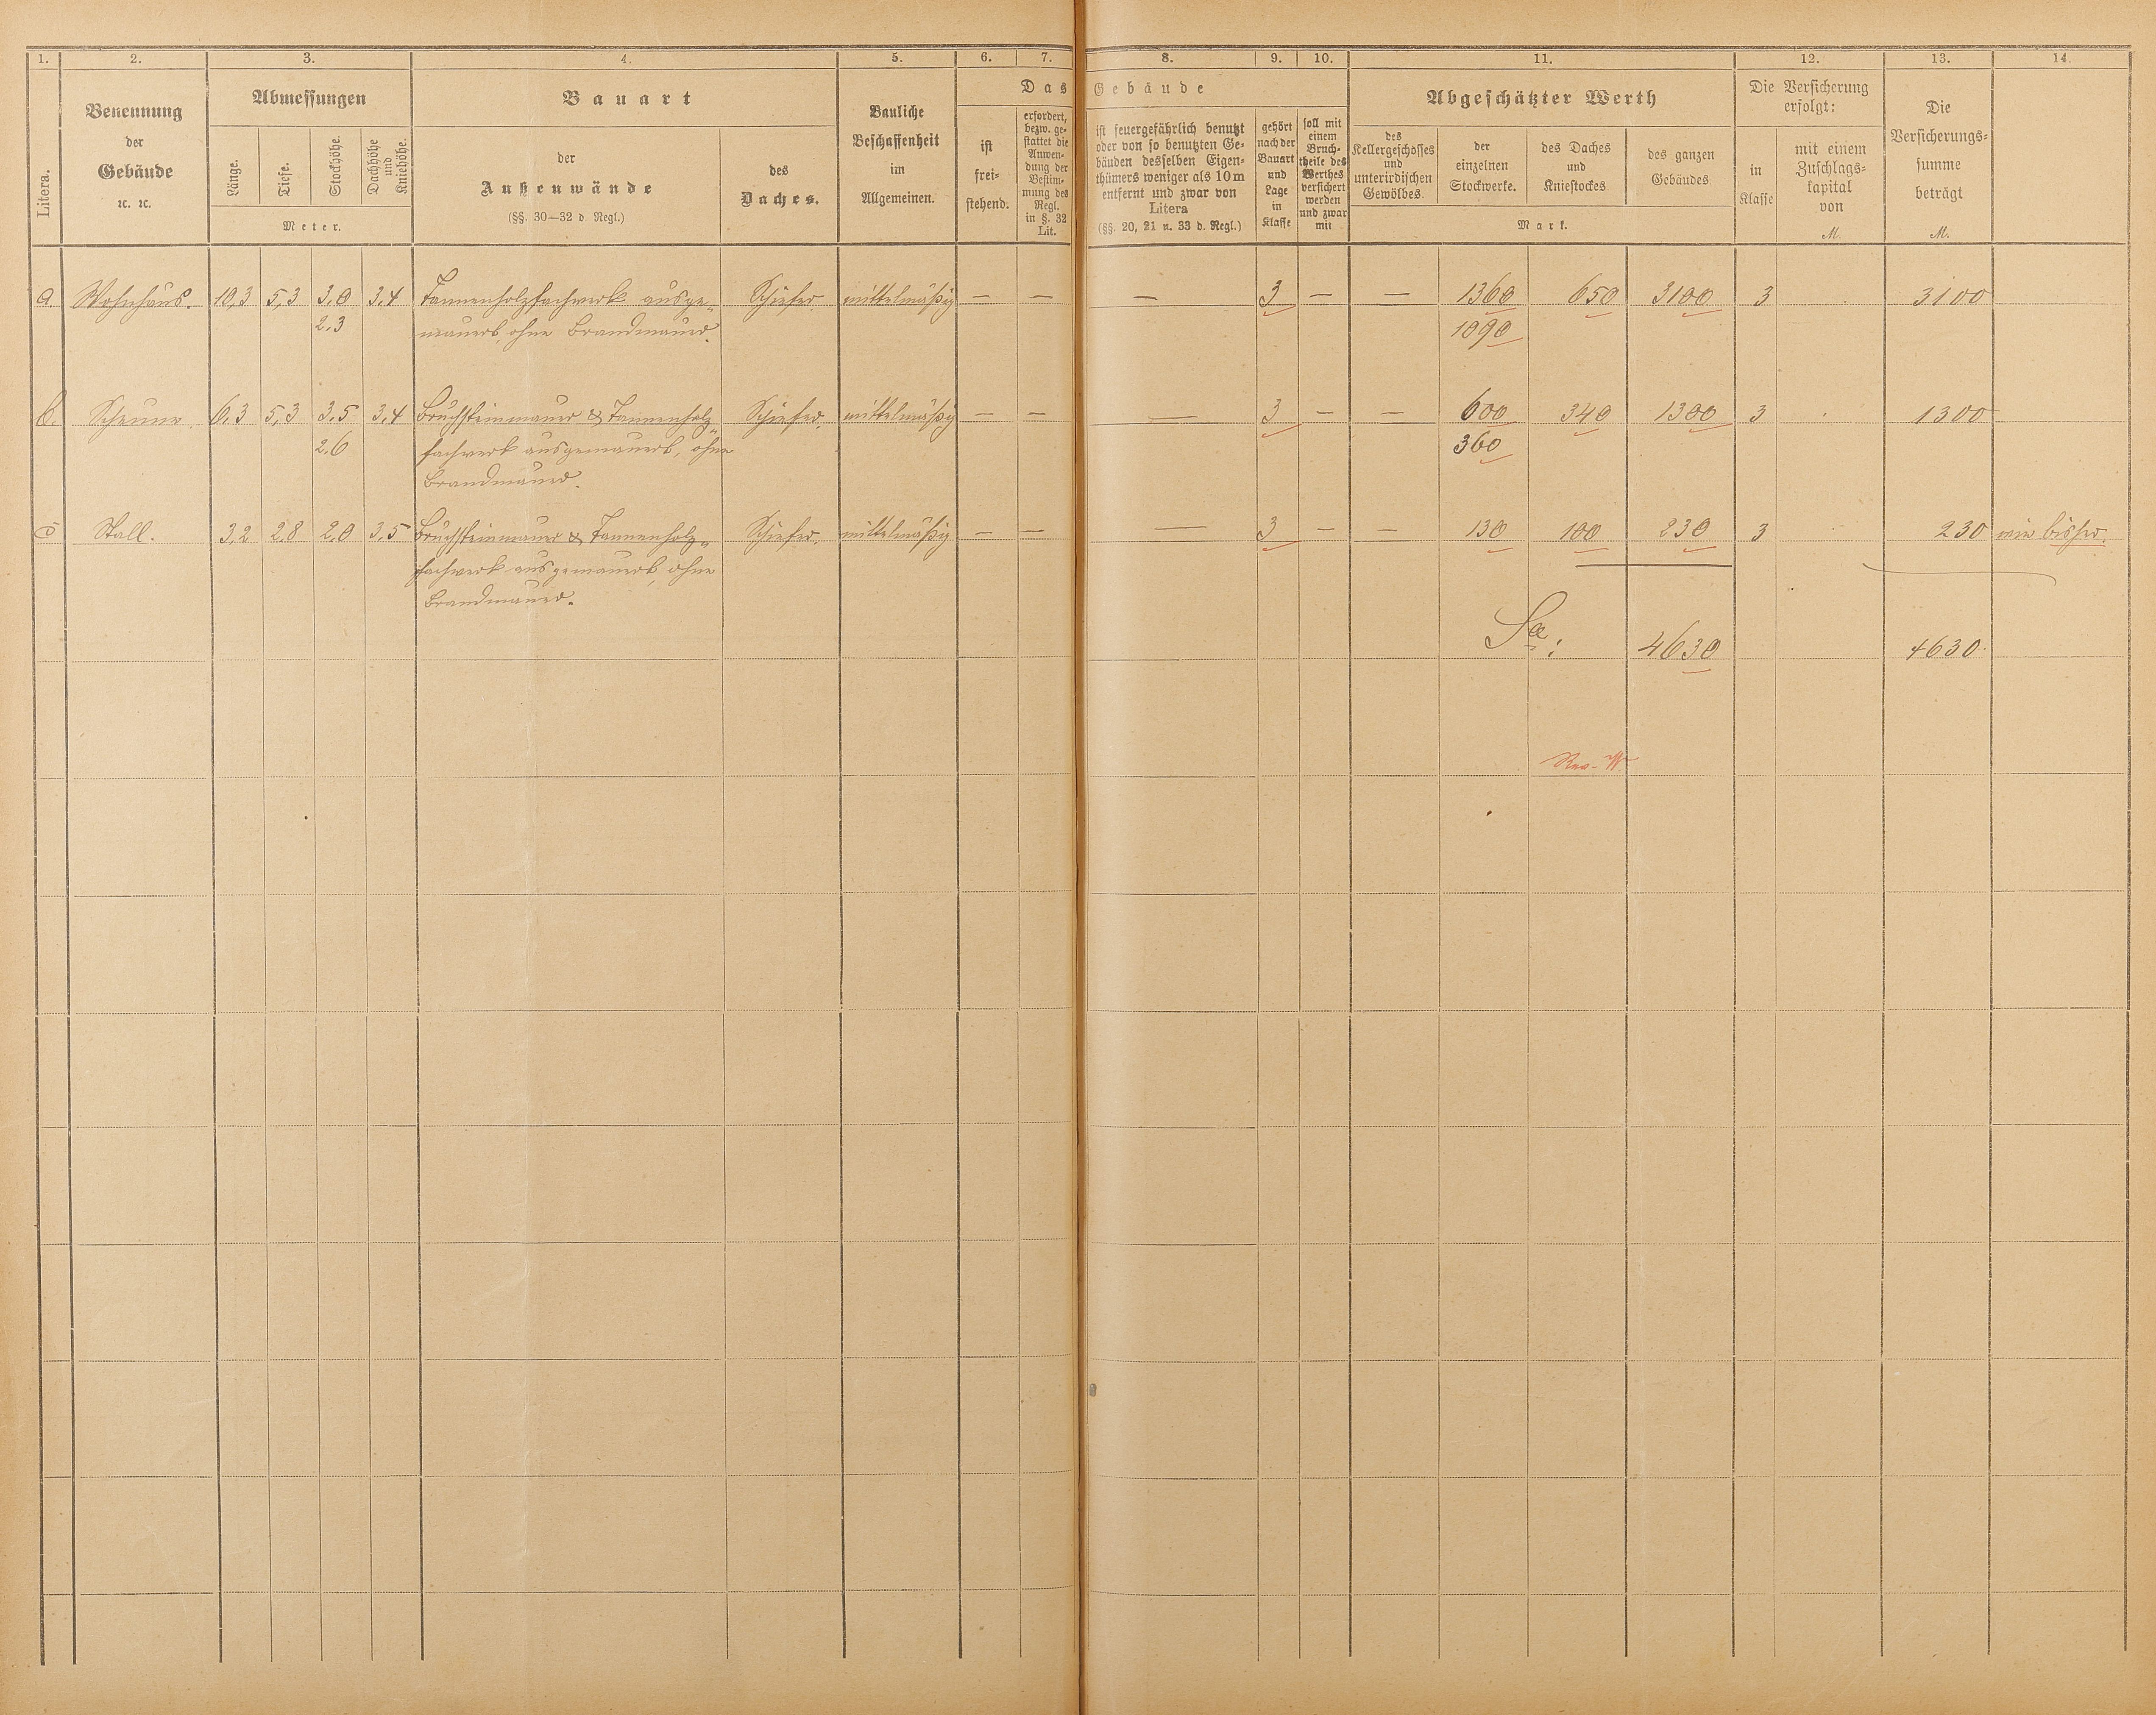 1. 2. 3. 4. 5. 6. 7. 8. 9. 10. 11. 12. 13. 14.
Litera.
Benennung
der
Gebäude
ꝛc. ꝛc.
Abmessungen
Länge.
Tiefe.
Stockhöhe.
Dachhöhe
und
Kniehöhe.
Meter.
Bauart
der
Außenwände
(§§. 30—32 d Regl.)
des
Daches.
Bauliche
Beschaffenheit
im
Allgemeinen.
Das Gebäude
ist
frei-
stehend.
erfordert,
bezw. ge-
stattet die
Anwen-
dung der
Bestim-
mung des
Regl.
in §. 32
Lit.
ist feuergefährlich benutzt
oder von so benutzten Ge-
bäuden desselben Eigen-
thümers weniger als 10 m
entfernt und zwar von
Litera
(§§. 20, 21 u. 33 d. Regl.)
gehört
nach der
Bauart
und
Lage
in
Klasse
soll mit
einem
Bruch-
theile des
Werthes
versichert
werden
und zwar
mit
Abgeschätzter Werth
des
Kellergeschosses
und
unterirdischen
Gewölbes.
der
einzelnen
Stockwerke.
des Daches
und
Kniestockes
des ganzen
Gebäudes
Mark.
Die Versicherung
erfolgt:
in
Klasse
mit einem
Zuschlags-
kapital
von
M.
Die
Versicherungs-
summe
beträgt
M.
a. Wohnhaus. 10,3 5,3 3,0 3,4 Tannenholzfachwerk ausge- Schiefer. mittelmäßig — — — 3 — — 1360 650 3100 3 3100
2,3 mauert, ohne Brandmauer. 1090
b. Scheune. 6,3 5,3 3,5 3,4 Bruchsteinmauer & Tannenholz- Schiefer. mittelmäßig — — — 3 — — 600 340 1300 3 1300
2,6 fachwerk ausgemauert, ohne 360
Brandmauer.
c Stall. 3,2 2,8 2,0 3,5 Bruchsteinmauer & Tannenholz- Schiefer. mittelmäßig — — — 3 — — 130 100 230 3 230 wie bisher.
fachwerk ausgemauert, ohne
Brandmauer.
Sa: 4630 4630